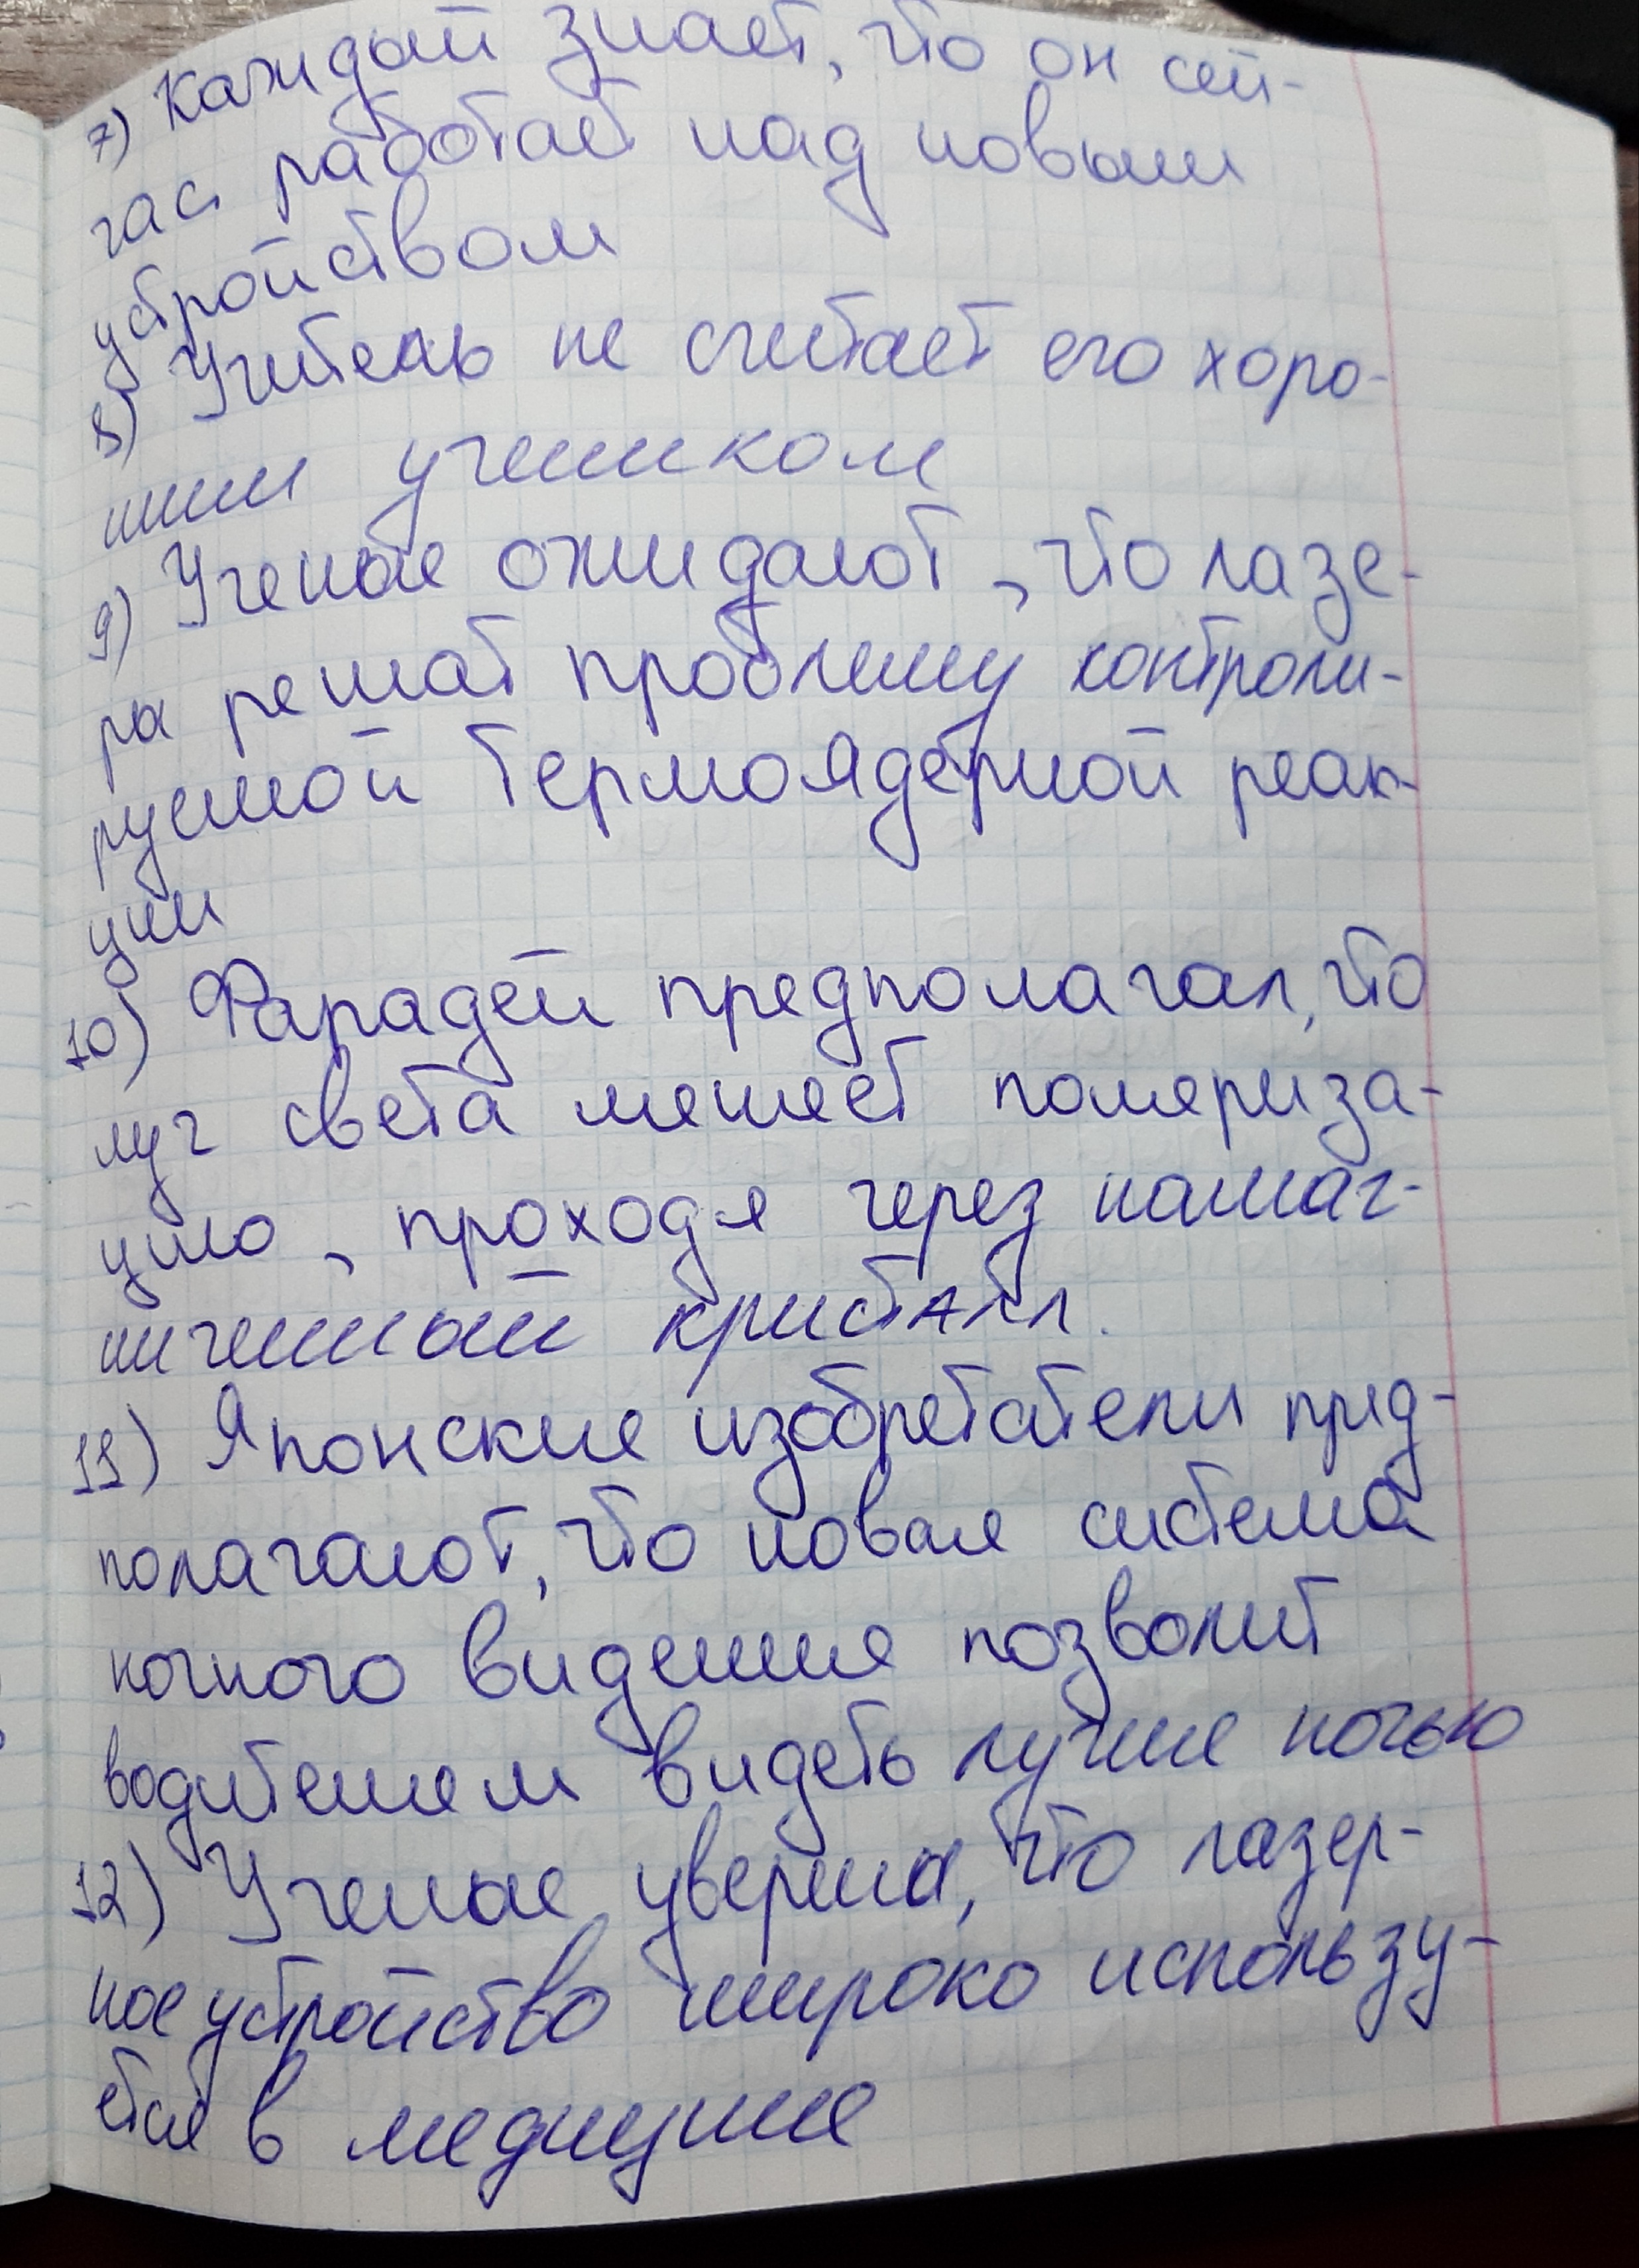 7) Каждый знает, что он сей-
час работает над новым
устройством
8) Учитель не считает его хоро-
шим учеником
9) Ученые ожидают, что лазе-
ры решат проблему контроли-
руемой термоядерной реак-
ции
10) Фарадей предполагал, что
луч света меняет поляриза-
цию, проходя через намаг-
ниченный кристалл.
11) Японские изобретатели пред-
полагают, что новая система
ночного видения позволит
водителям видеть лучше ночью
12) Ученые уверены, что лазер-
ное устройство широко использу-
ется в медицине